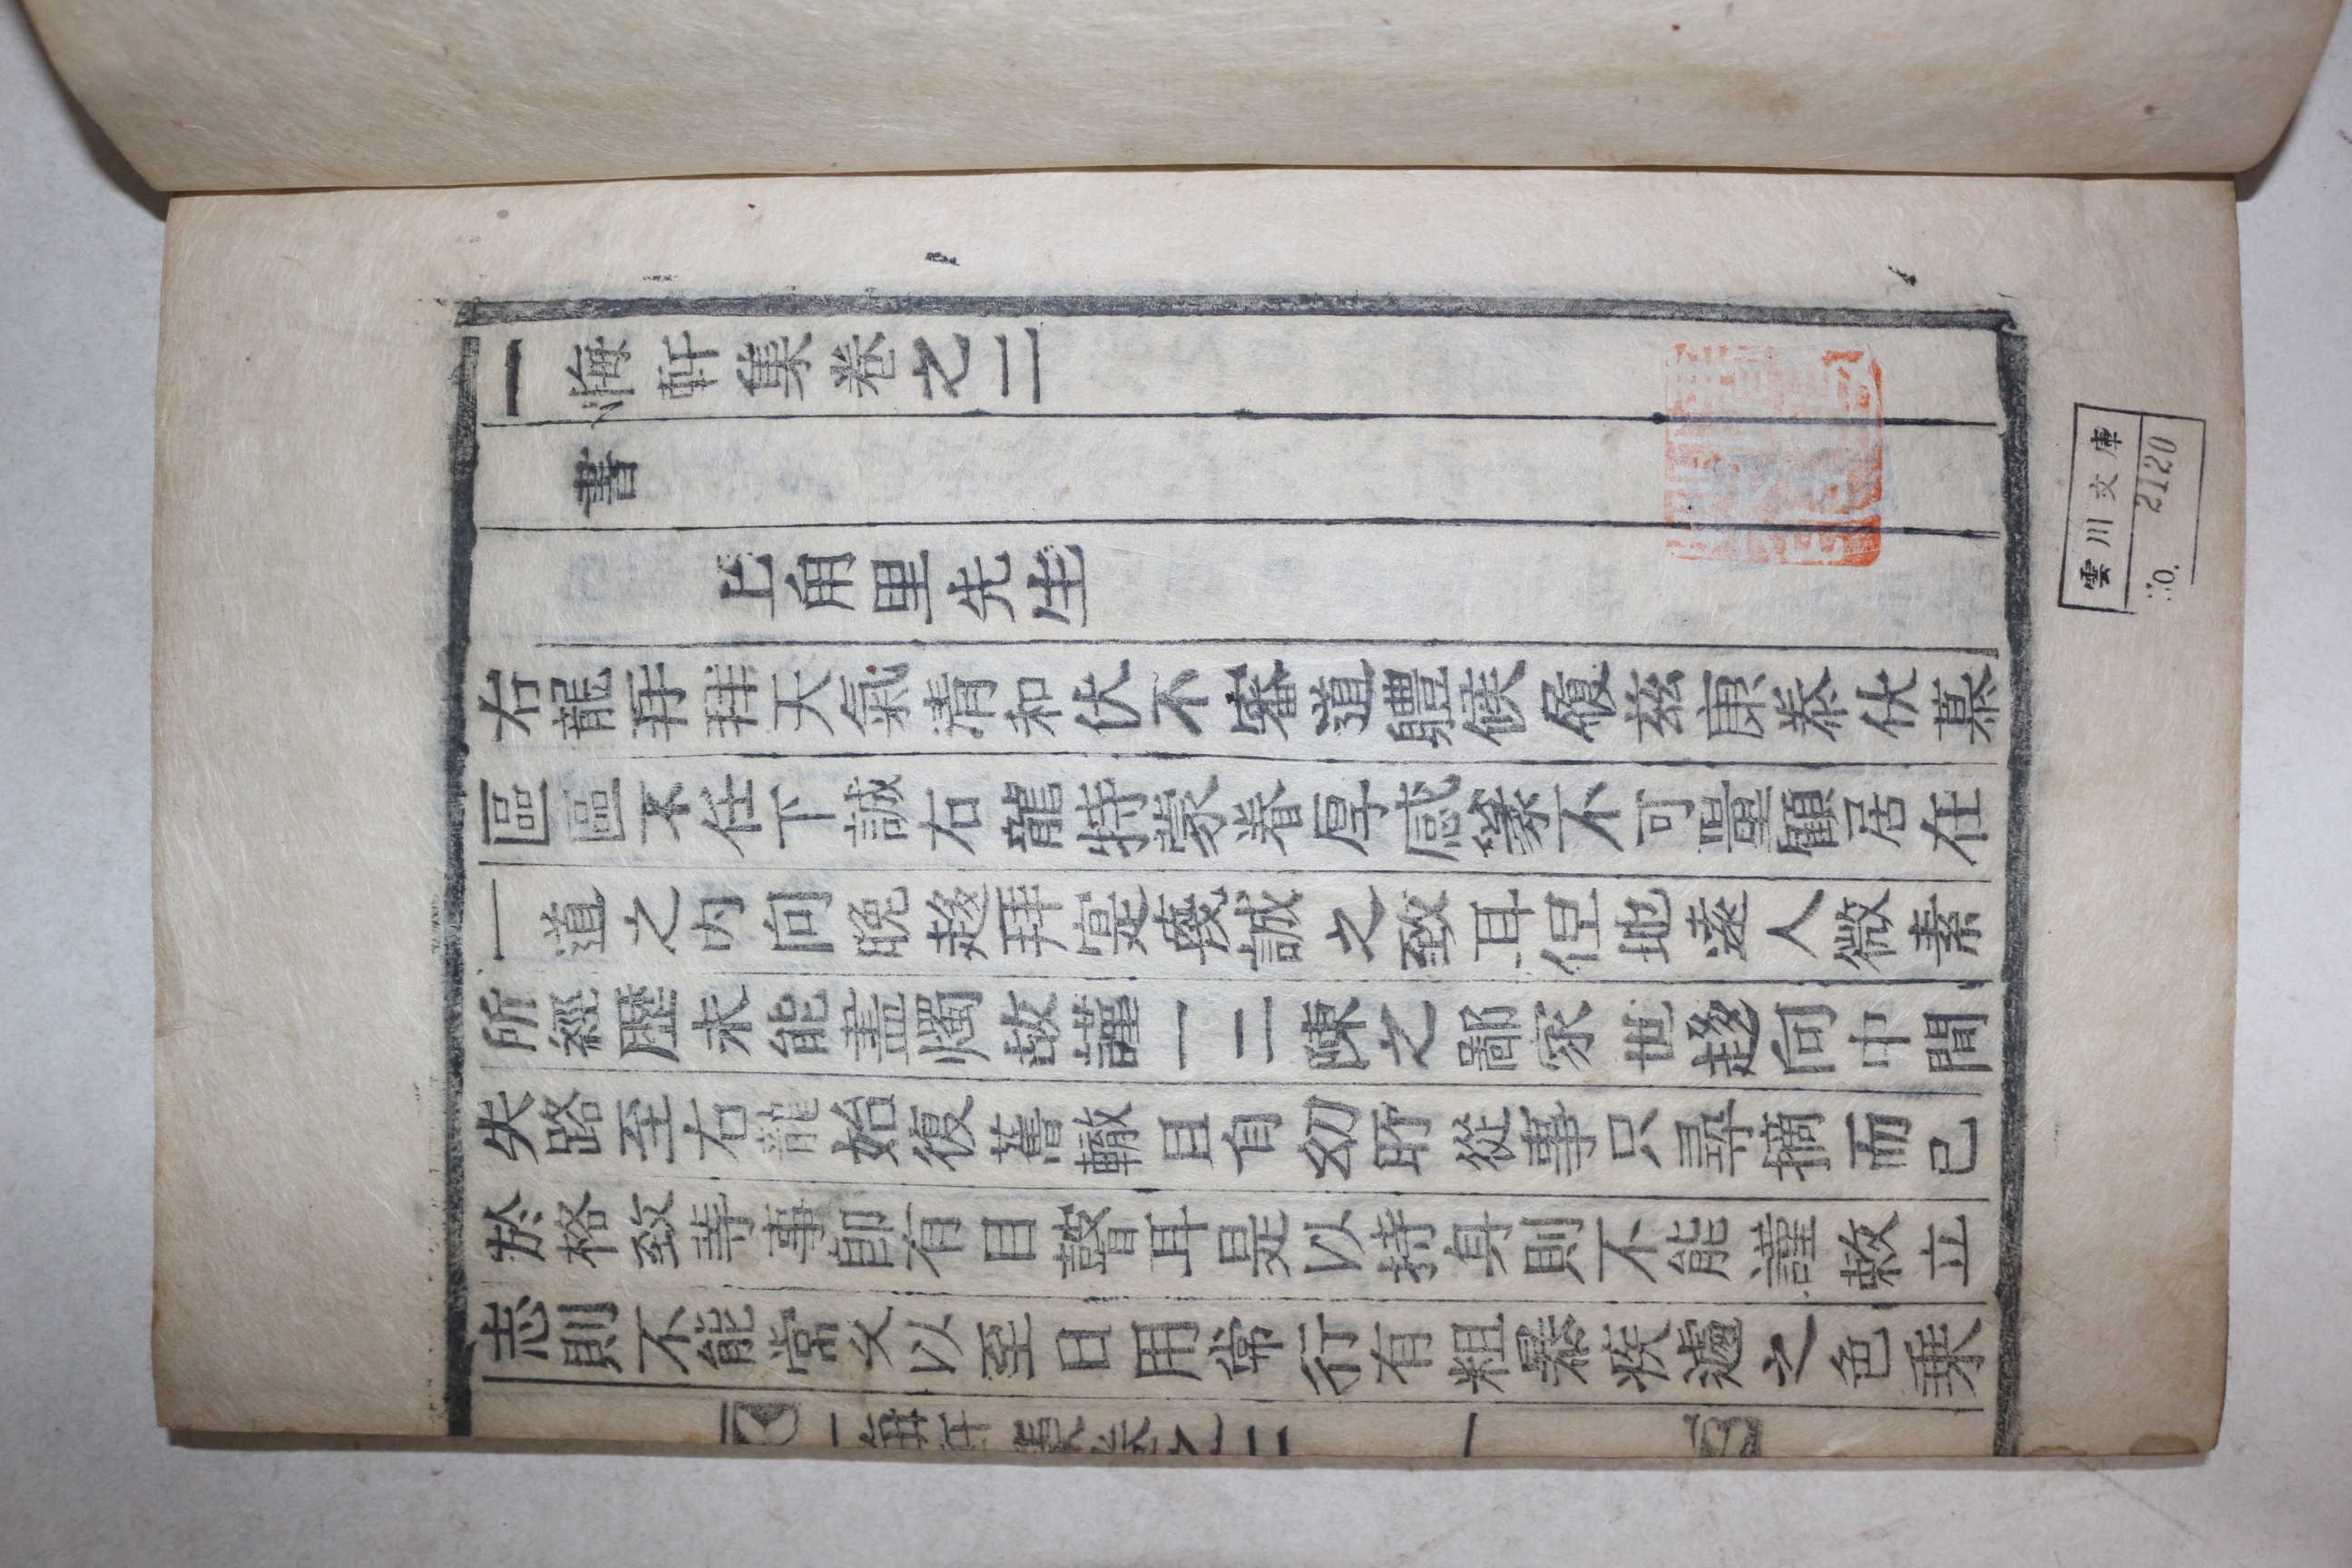 一悔軒集卷之二
書
上角里先生
右龍再拜天氣清和伏不審道體候履玆康泰伏慕
區區不任下誠右龍特蒙眷厚感篆不可量顧居在
一道之內向晚趍拜寔癈誠之致耳但地遠人微素
所經歷未能盡燭故謹一二陳之鄙家世趍向中間
失路至右龍始復舊轍且自幼所從事只尋摘而已
於格致等事卽有目瞽耳是以持身則不能謹敕立
志則不能常久以至日用常行有粗暴疾遽之色乗
一悔軒集卷之二 一
雲川文庫
No. 2120